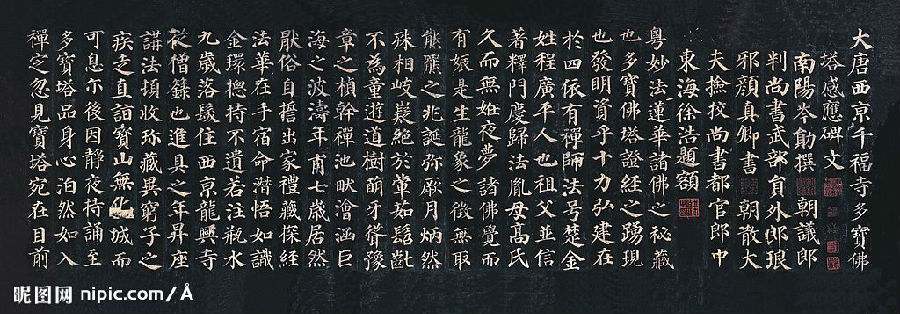 大唐西京千福寺多寶佛
塔感應碑文
南陽岑勛撰 朝議郎
判尚書武部員外郎琅
邪顏真卿書 朝散大
夫撿校尚書都官郎中
東海徐浩題額
粵妙法蓮華諸佛之秘藏
也多寶佛塔證經之踴現
也發明資乎十力弘建在
於四依有禪師法号楚金
姓程廣平人也祖父並信
著釋門慶歸法胤母高氏
久而無姙夜夢諸佛覺而
有娠是生龍象之徵無取
熊羆之兆誕弥厥月炳然
殊相岐嶷絕於葷茹髫齔
不為童遊道樹萌牙聳豫
章之楨幹禪池畎澮涵巨
海之波濤年甫七歲居然
厭俗自誓出家禮藏探經
法華在手宿命潛悟如識
金環揔持不遺若注瓶水
九歲落髮住西京龍興寺
從僧籙也進具之年昇座
講法頓收珎藏異窮子之
疾走直詣寶山無化城而
可息尒後因靜夜持誦至
多寶塔品身心泊然如入
禪定忽見寶塔宛在目前
昵图网 nipic.com/Å